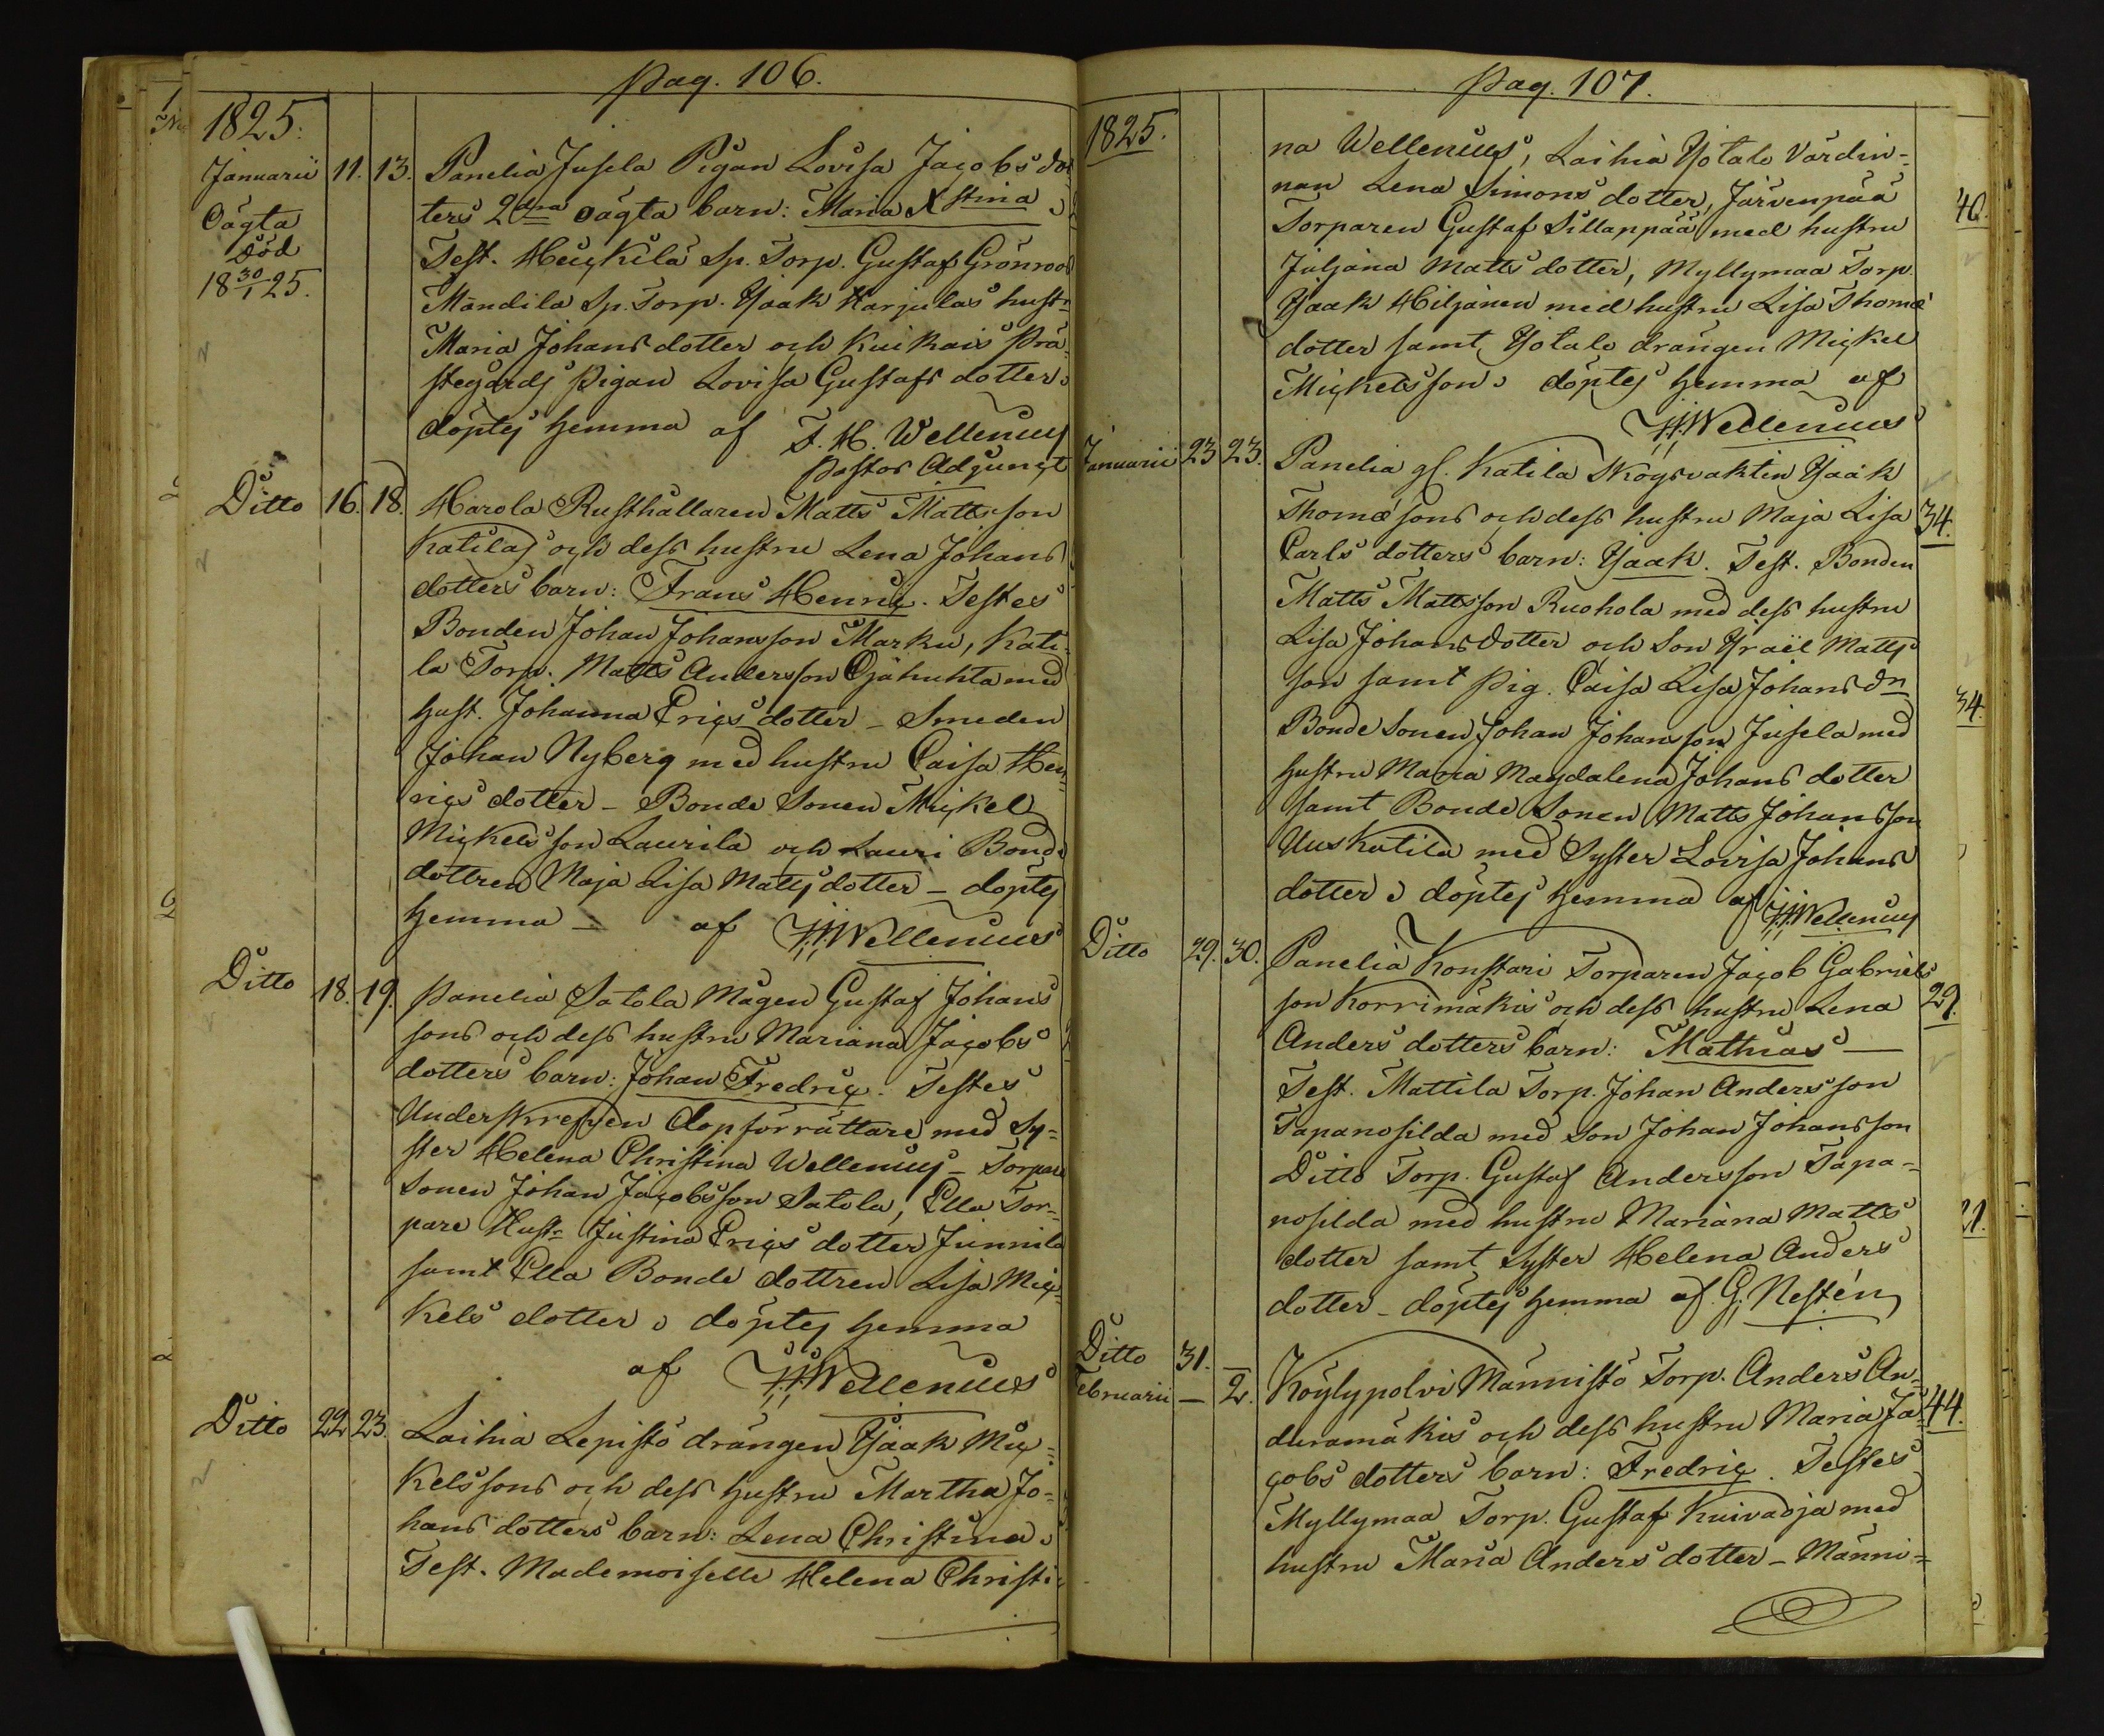 Pag. 106.
1825.
Januarii 11. 13. Panelia Jusela Pigan Lovisa Jacobs dot
Oägta
död
18 30/1 25.
ters 2dra oägta barn: Maria Xstina
Test. Heickilä Sp. Torp. Gustaf Grönroos
Mandila Sp. Torp. Isaak Harjulas hustr
Maria Johans dotter och Kuikais Prä-
stegårds Pigan Lovisa Gustafs dotter.
döptes hemma af F. H. Wellenius
Pastor Adjunct
Ditto 16. 18. Harola Rusthållaren Matts Mattsson
Katilas och dess hustru Lena Johans
dotters barn: Frans Henric. Testes
Bonden Johan Johansson Marku, Kati-
la Torp. Matts Andersson Ojahuhta med
hust. Johanna Erics dotter – Smeden
Johan Nyberg med hustru Caisa Hen-
rics dotter – Bonde Sonen Mickel
Mickelsson Laurila och Lauri Bonde
dottren Maja Lisa Matts dotter – döptes
hemma – af F.H. Wellenius
Ditto 18. 19. Panelia Satola Mågen Gustaf Johans
sons och dess hustru Mariana Jacobs
dotters barn: Johan Fredric. Testes
Underskrefven dopförrättare med Sy-
ster Helena Christina Wellenius – Torpare
Sonen Johan Jacobsson Satola, Ella Tor-
pare Hustr Justina Erics dotter Junnila
samt Ella Bonde dottren Lisa Mic-
kels dotter. döptes hemma
af F.H. Wellenius
Ditto 22 23. Laihia Lepistö drängen Isaak Mic-
kelssons och dess hustru Martha Jo-
hans dotters barn: Lena Christina.
Test. Mademoiselle Helena Christi-
Pag. 107.
1825.
na Wellenius, Laihia Yötalo Värdin-
nan Lena Simons dotter, Järvenpää
Torparen Gustaf Sillanpää med hustru
Juljana Matts dotter, Myllymaa Torp.
Isaak Hiljanen med hustru Lisa Thomæ
dotter samt Yötalo drängen Mickel
Mickelsson. döptes hemma af
F.H. Wellenius
Januarii 23 23. Panelia gl. Katila Skogsvakten Isaak
Thomæsons och dess hustru Maja Lisa 34.
Carls dotters barn: Isaak. Test. Bonden
Matts Mattsson Ruohola med dess hustru
Lisa Johans dotter och Son Israël Matts
son samt Pig. Caisa Lisa Johans dn
Bonde Sonen Johan Johansson Jusela med
hustru Maria Magdalena Johans dotter
samt Bonde Sonen Matts Johansson
Uuskatila med Syster Lovisa Johans
dotter. döptes hemma af F.H. Wellenius
Ditto 29. 30. Panelia Konstari Torparen Jacob Gabriels
son Korrimäkis och dess hustru Lena 29.
Anders dotters barn: Mathias –
Test. Mattila Torp. Johan Andersson
Tapanosilda med Son Johan Johansson
Ditto Torp. Gustaf Andersson Tapa-
nosilda med hustru Mariana Matts
dotter samt Syster Helena Anders
dotter – döptes hemma af G. Nestén
Ditto 31. –
Februarii – 2. Köylypolvi Männistö Torp. Anders An-
duramäkis och dess hustru Maria Ja- 44.
cobs dotters barn: Fredric. Testes
Myllymaa Torp. Gustaf Kuivaoja med
hustru Maria Anders dotter – Männi-
46.
34.
21.